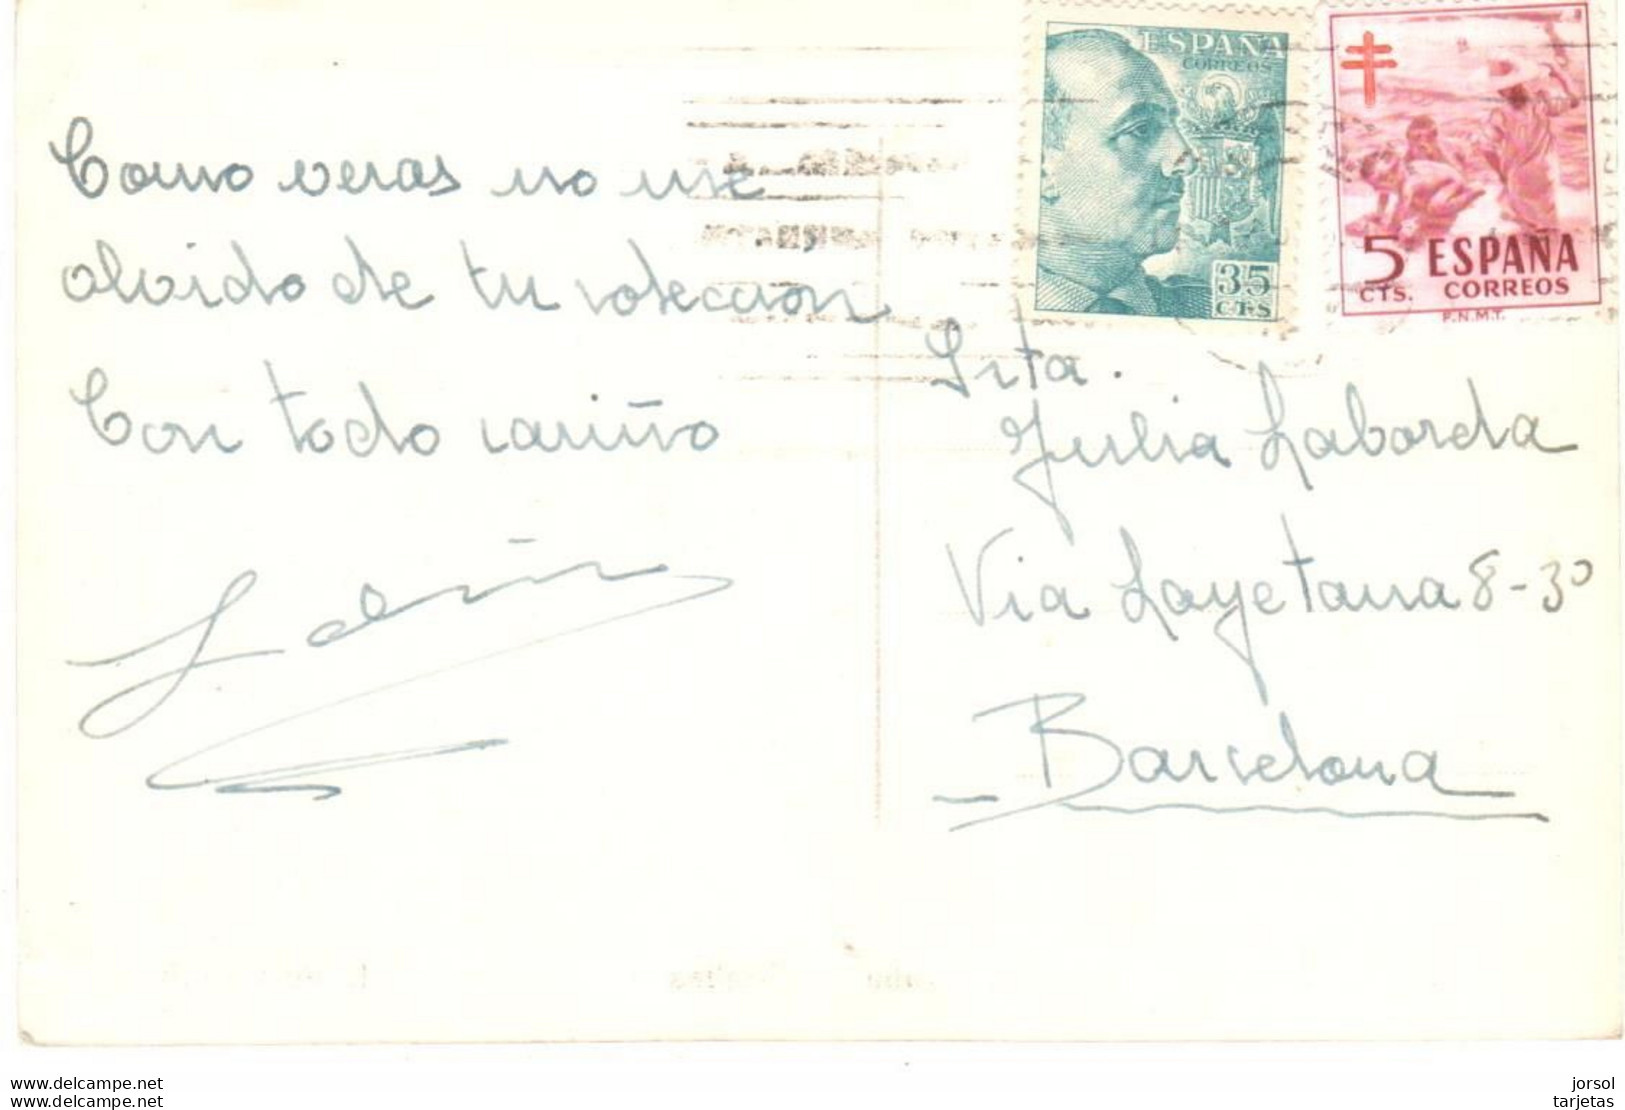 Como veras no me
olvido de tu coleccion
Con todo cariño
ESPAÑA
CORREOS
35
CTS
5
CTS.
ESPAÑA
CORREOS
F.N.M.T.
Srta.
Julia Laborda
Via Layetana 8-3º
Barcelona
www.delcampe.net
www.delcampe.com
jorsol
tarjetas